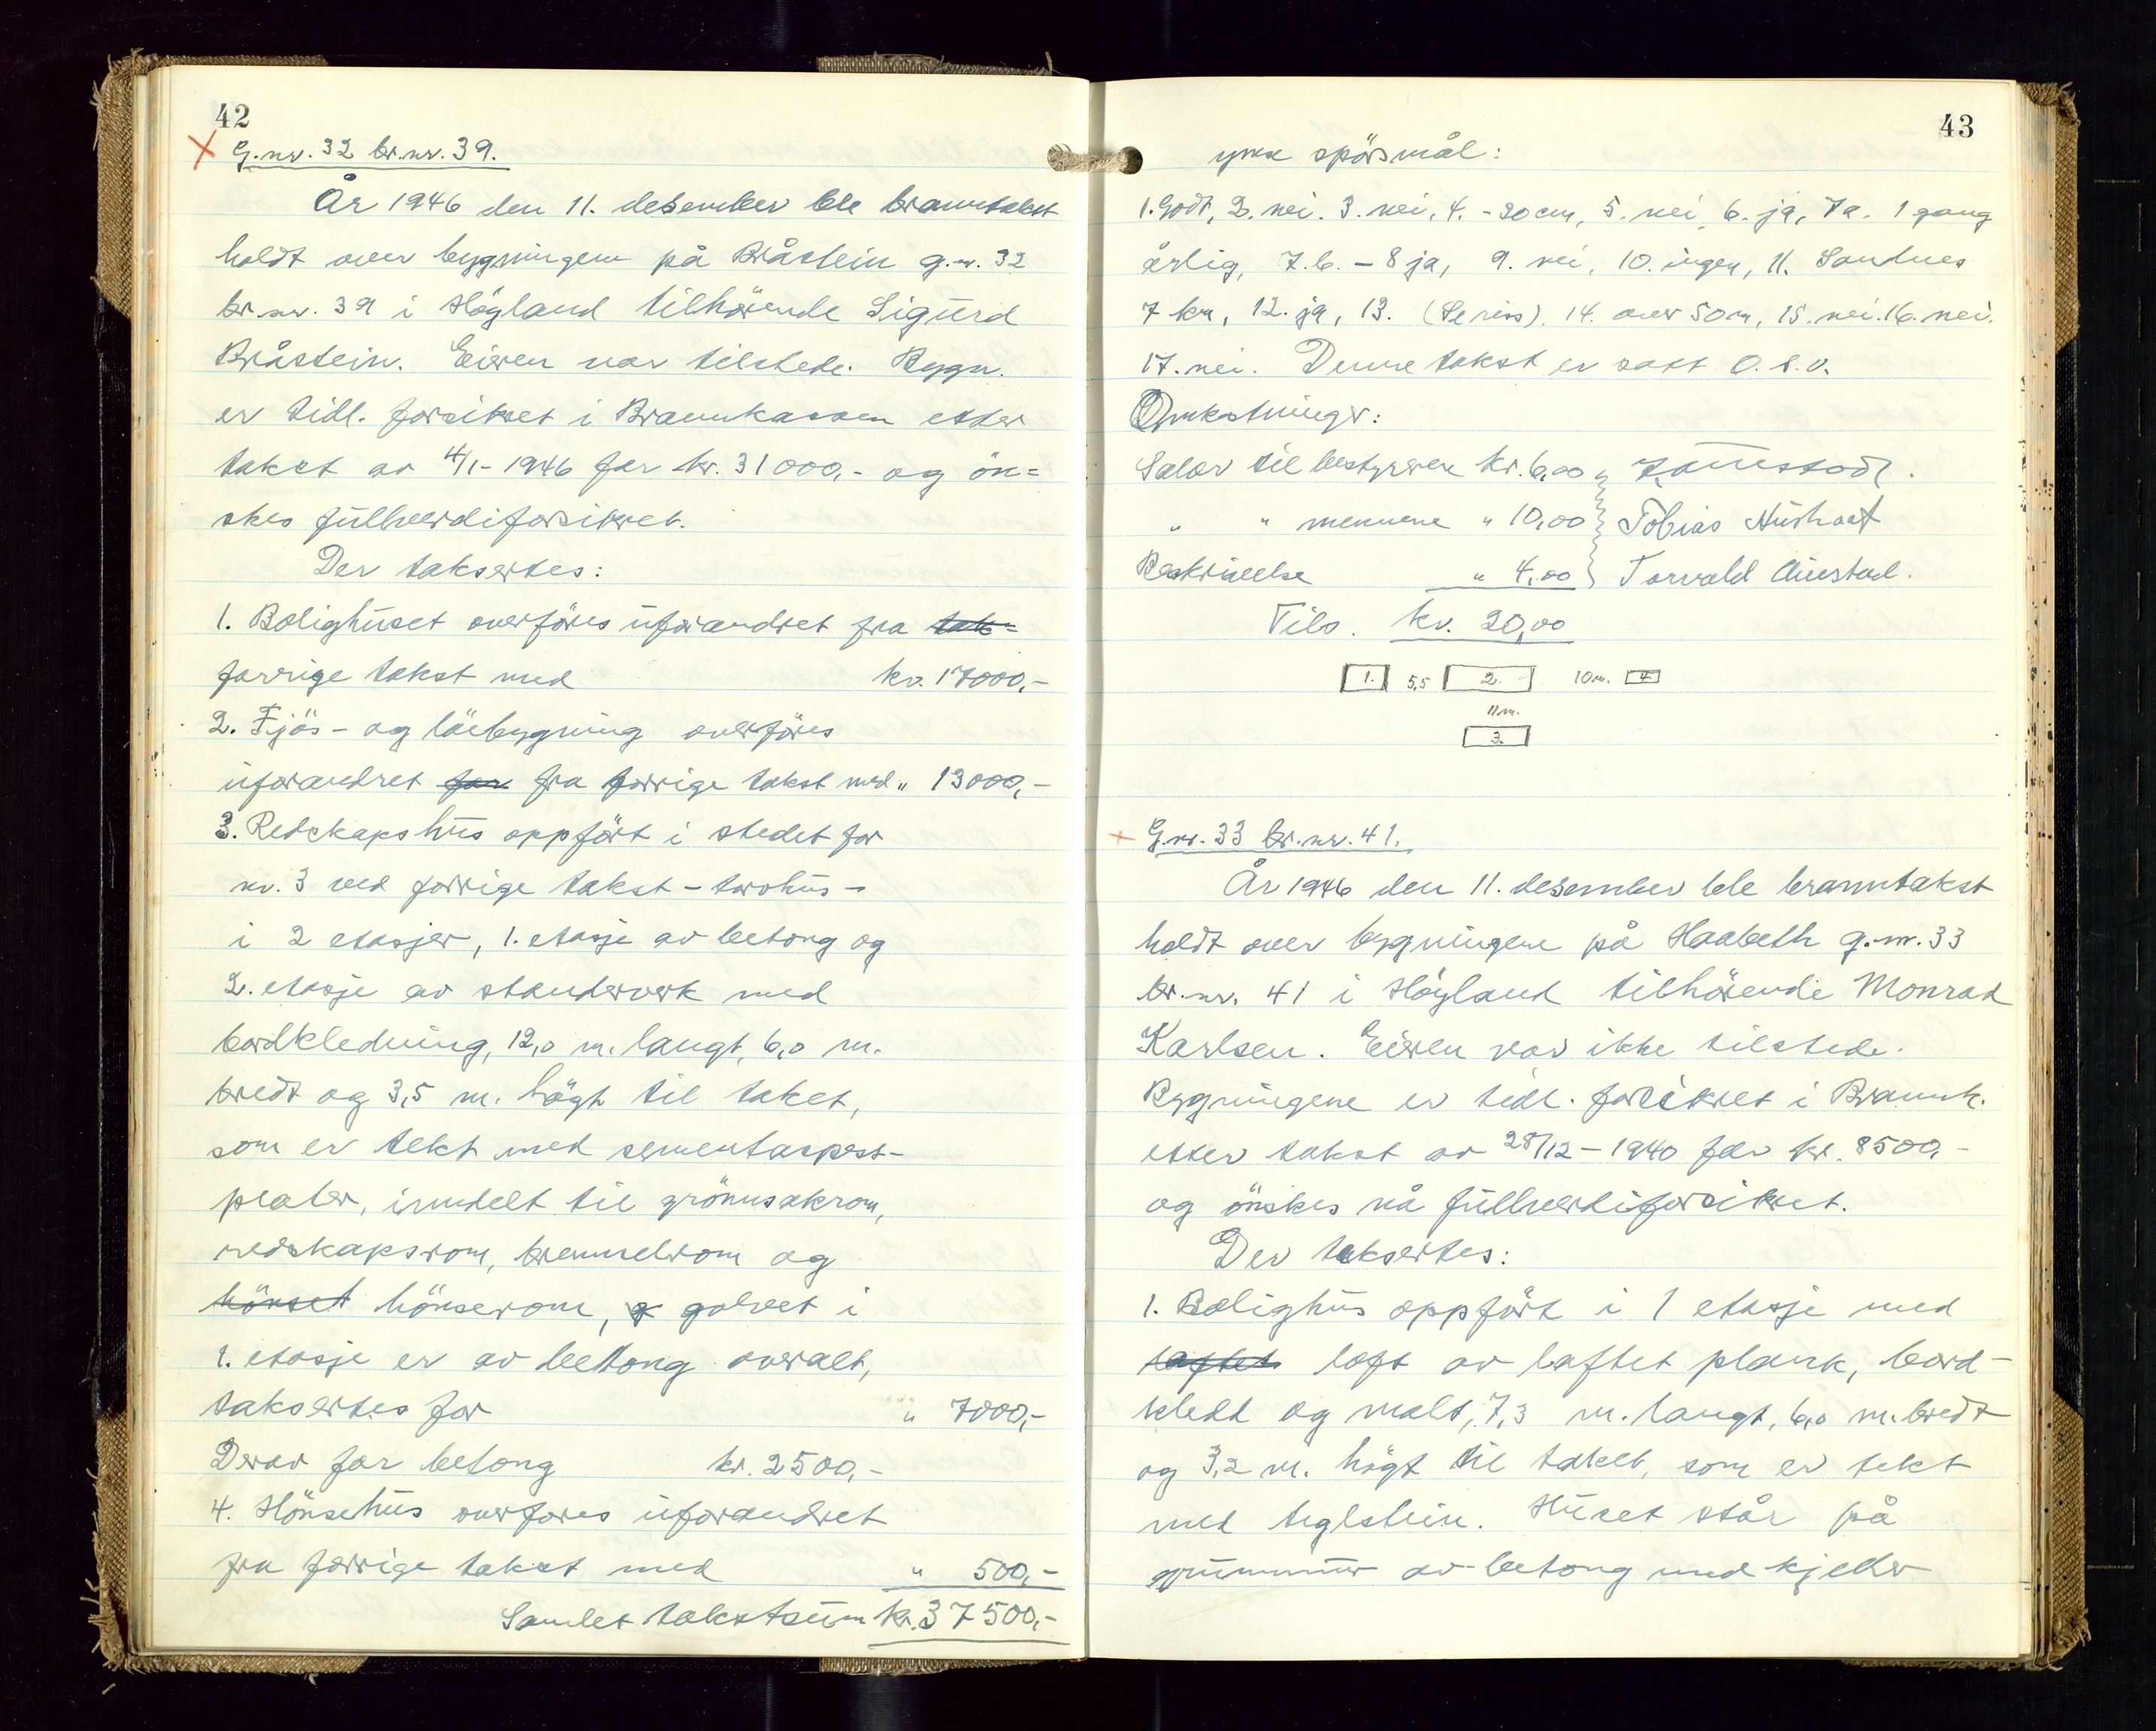 42
G.nr. 32 br.nr. 39.
År 1946 den 11. desember ble branntakst
holdt over bygningene på Bråstein g.nr. 32
br.nr. 39 i Högland tilhörende Sigurd
Bråstein. Eieren var tilstede. Bygn.
er tidl. forsikret i Brannkassen etter
takst av 4/1-1946 for kr. 31000,- og ön=
skes fullverdiforsikret.
Der taksertes:
1. Bolighuset overföres uforandret fra tak=
forrige takst med kr. 17000,-
2. Fjös- og löebygning overföres
uforandret for fra forrige takst med " 13000,-
3. Redskapshus oppfört i stedet for
nr. 3 ved forrige takst - torvhus -
i 2 etasjer, 1. etasje av betong og
2. etasje av standerverk med
bordkledning, 12,0 m. langt, 6,0 m.
bredt og 3,5 m. högt til taket,
som er tekt med sementaspest-
plater, inndelt til grönnsakrom,
redskapsrom, brenselrom og
hönset hönserom, g golvet i
1. etasje er av betong overalt,
taksertes for " 7000,-
Derav for betong kr. 2500,-
4. Hönsehus overfores uforandret
fra forrige takst med " 500,-
Samlet takstsum kr. 37500,-
43
spörsmål:
1. Godt, 2. nei. 3. nei, 4. - 20 cm, 5. nei, 6. ja, 7a. 1 gang
årlig, 7.b. - 8 ja, 9. nei, 10. ingen, 11. Sandnes
7 km, 12. ja, 13. (Se riss). 14. over 50 m, 15. nei. 16. nei.
17. nei. Denne takst er satt O.s.v.
Omkostninger:
Salær til bestyreren kr. 6,00
" " mennene " 10,00 Tobias
Beskrivelse " 4,00 Torvald Austad.
Tils. kr. 20,00
1. 5,5 2. 10 m. 4.
11 m.
3.
G.nr. 33 br.nr. 41.
År 1946 den 11. desember ble branntakst
holdt over bygningene på Haabeth g.nr. 33
br.nr. 41 i Högland tilhörende Monrad
Karlsen. Eieren var ikke tilstede.
Bygningene er tidl. forsikret i Brannk.
etter takst av 28/12-1940 for kr. 8500,-
og önskes nå fullverdiforsikret.
Der taksertes:
1. Bolighus oppfört i 1 etasje med
laftet loft av laftet plank, bord-
kledt og malt, 7,3 m. langt, 6,0 m. bredt
og 3,2 m. högt til taket, som er tekt
med teglstein. Huset står på
grunnmur av betong med kjeller